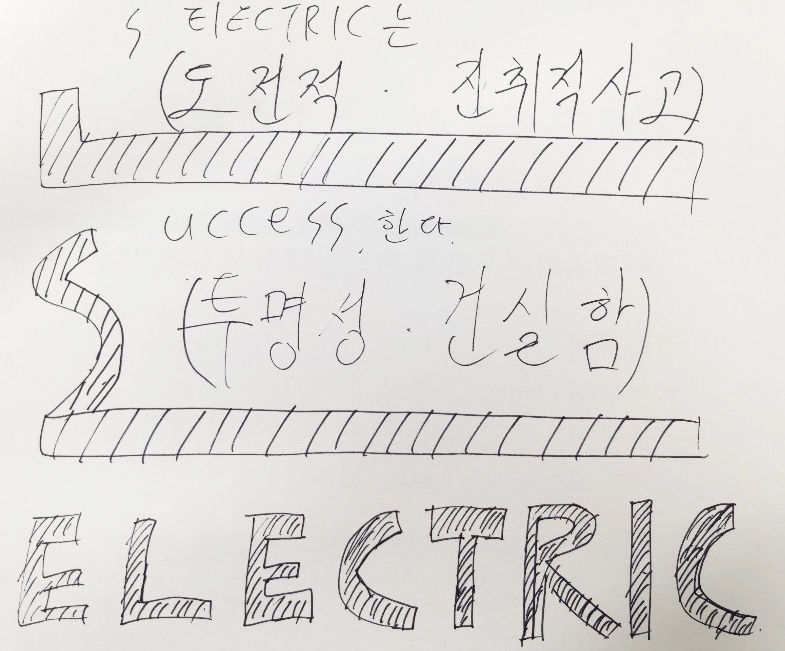 S ElECTRIC는
(도전적 · 진취적사고)
L
uccess 한다.
S
(투명성 · 건실함)
ELECTRIC